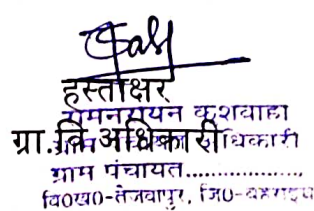 हस्ताक्षर
रामनरायन कुशवाहा
ग्रा.वि अधिकारी
ग्राम अधिकारी
ग्राम पंचायत..................
वि0ख0-तेजवापुर, जि0-बहराइच